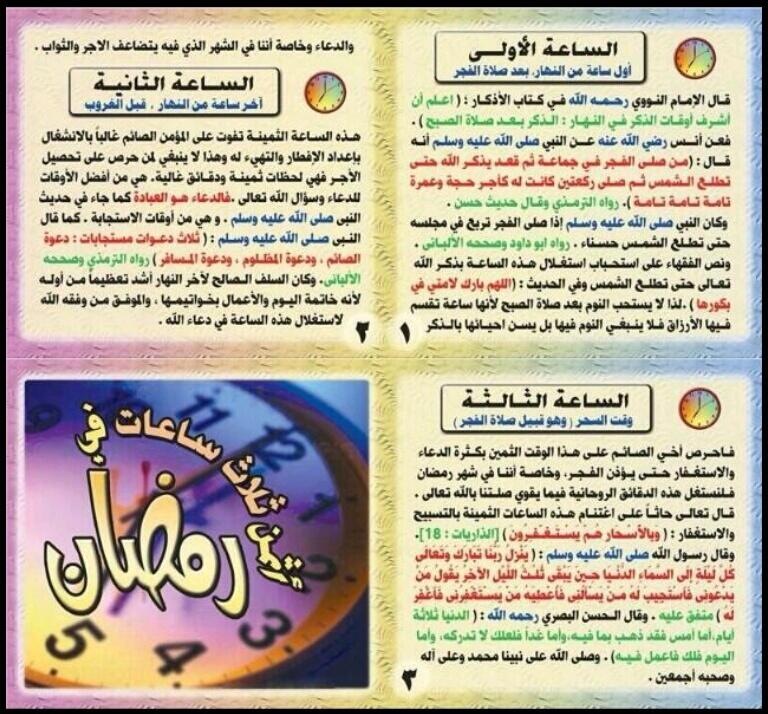 الساعة الأولى
أول ساعة من النهار، بعد صلاة الفجر
قال الإمام النووي رحمه الله في كتاب الأذكار : ( اعلم أن
أشرف أوقات الذكر في النهار : الذكر بعد صلاة الصبح ) .
فعن أنس رضي الله عنه عن النبي صلى الله عليه وسلم أنه
قال : (من صلى الفجر في جماعة ثم قعد يذكر الله حتى
تطلع الشمس ثم صلى ركعتين كانت له كأجر حجة وعمرة
تامة تامة تامة ). رواه الترمذي وقال حديث حسن .
وكان النبي صلى الله عليه وسلم إذا صلى الفجر تربع في مجلسه
حتى تطلع الشمس حسناء . رواه ابو داود وصححه الألباني .
ونص الفقهاء على استحباب استغلال هذه الساعة بذكر الله
تعالى حتى تطلع الشمس وفي الحديث : (اللهم بارك لامتي في
بكورها ) .لذا لا يستحب النوم بعد صلاة الصبح لأنها ساعة تقسم
فيها الأرزاق فلا ينبغي النوم فيها بل يسن احيائها بالذكر
١
والدعاء وخاصة أننا في الشهر الذي فيه يتضاعف الاجر والثواب .
الساعة الثانية
آخر ساعة من النهار ، قبل الغروب
هذه الساعة الثمينة تفوت على المؤمن الصائم غالباً بالانشغال
بإعداد الإفطار والتهيء له وهذا لا ينبغي لمن حرص على تحصيل
الأجر فهي لحظات ثمينة ودقائق غالية، هي من أفضل الأوقات
للدعاء وسؤال الله تعالى .فالدعاء هو العبادة كما جاء في حديث
النبي صلى الله عليه وسلم . و هي من أوقات الاستجابة . كما قال
النبي صلى الله عليه وسلم : ( ثلاث دعوات مستجابات : دعوة
الصائم ، ودعوة المظلوم ، ودعوة المسافر ) رواه الترمذي وصححه
الألباني. وكان السلف الصالح لآخر النهار أشد تعظيماً من أوله
لأنه خاتمة اليوم والأعمال بخواتيمها ، والموفق من وفقه الله
لاستغلال هذه الساعة في دعاء الله .
٢
الساعة الثالثة
وقت السحر ( وهو قبيل صلاة الفجر )
فاحرص أخي الصائم على هذا الوقت الثمين بكثرة الدعاء
والاستغفار حتى يؤذن الفجر، وخاصة أننا في شهر رمضان
فلنستغل هذه الدقائق الروحانية فيما يقوي صلتنا بالله تعالى .
قال تعالى حاثاً على اغتنام هذه الساعات الثمينة بالتسبيح
والاستغفار : ( وَبِالأَسْحَارِ هُمْ يَسْتَغْفِرُونَ ) [الذاريات : 18].
وقال رسول الله صلى الله عليه وسلم : ( يَنْزِلُ رَبُّنَا تَبَارَكَ وَتَعَالَى
كُلَّ لَيْلَةٍ إِلَى السَّمَاءِ الدُّنْيَا حِينَ يَبْقَى ثُلُثُ اللَّيْلِ الآخِرُ يَقُولُ مَنْ
يَدْعُونِي فَأَسْتَجِيبَ لَهُ مَنْ يَسْأَلُنِي فَأُعْطِيَهُ مَنْ يَسْتَغْفِرُنِي فَأَغْفِرَ
لَهُ ) متفق عليه . وقال الحسن البصري رحمه الله : ( الدنيا ثلاثة
أيام،أما أمس فقد ذهب بما فيه،وأما غداً فلعلك لا تدركه، وأما
اليوم فلك فاعمل فيه) . وصلى الله على نبينا محمد وعلى آله
وصحبه أجمعين .
٣
أثمن ثلاث ساعات في
رمضان
11
12
1
2
3
4
5